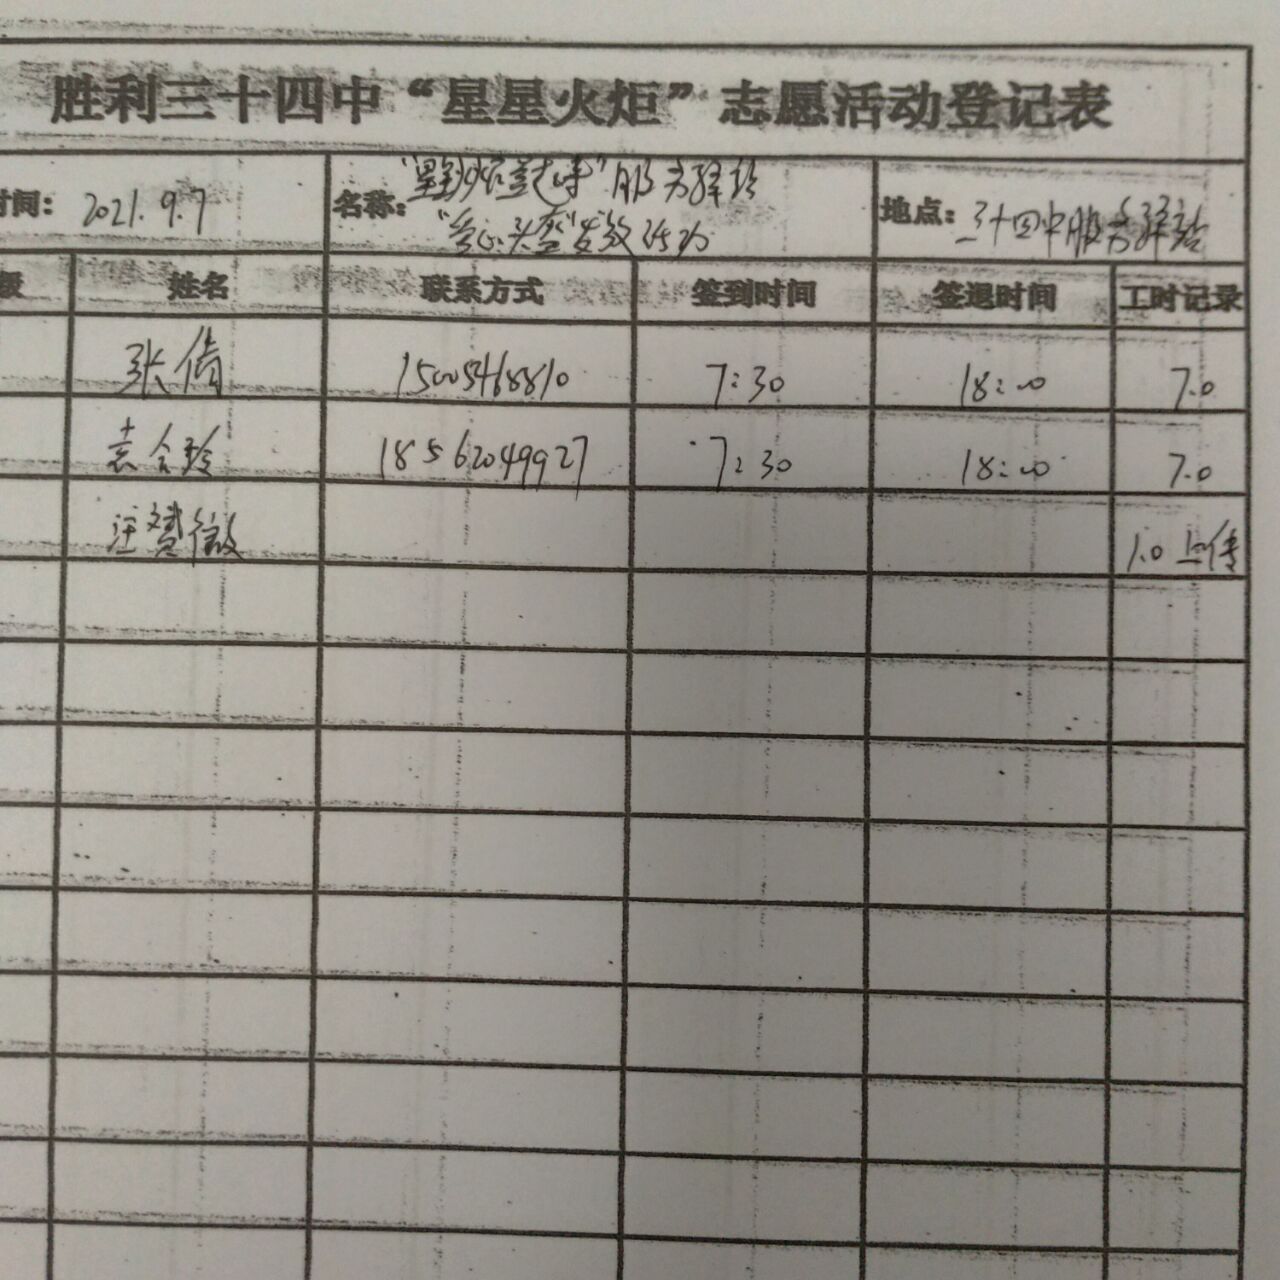 胜利三十四中“星星火炬”志愿活动登记表
时间: 2021.9.7
名称: 服务驿站
头盔"发放活动
地点: 三十四中服务驿站
级 姓名 联系方式 签到时间 签退时间 工时记录
张倩 15005468810 7:30 18:00 7.0
袁合玲 18562049927 7:30 18:00 7.0
汪赟微 1.0 上传